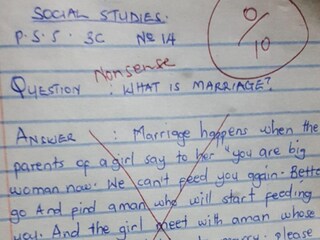 SOCIAL STUDIES.
P.S.S. 3C No 14
0/10
Nonsense
QUESTION : WHAT IS MARRIAGE?
ANSWER : Marriage happens when the
parents of a girl say to her "you are big
woman now. We can't feed you again. Bette
go And find aman who will start feeding
you. And the girl meet with aman whose
marry. please